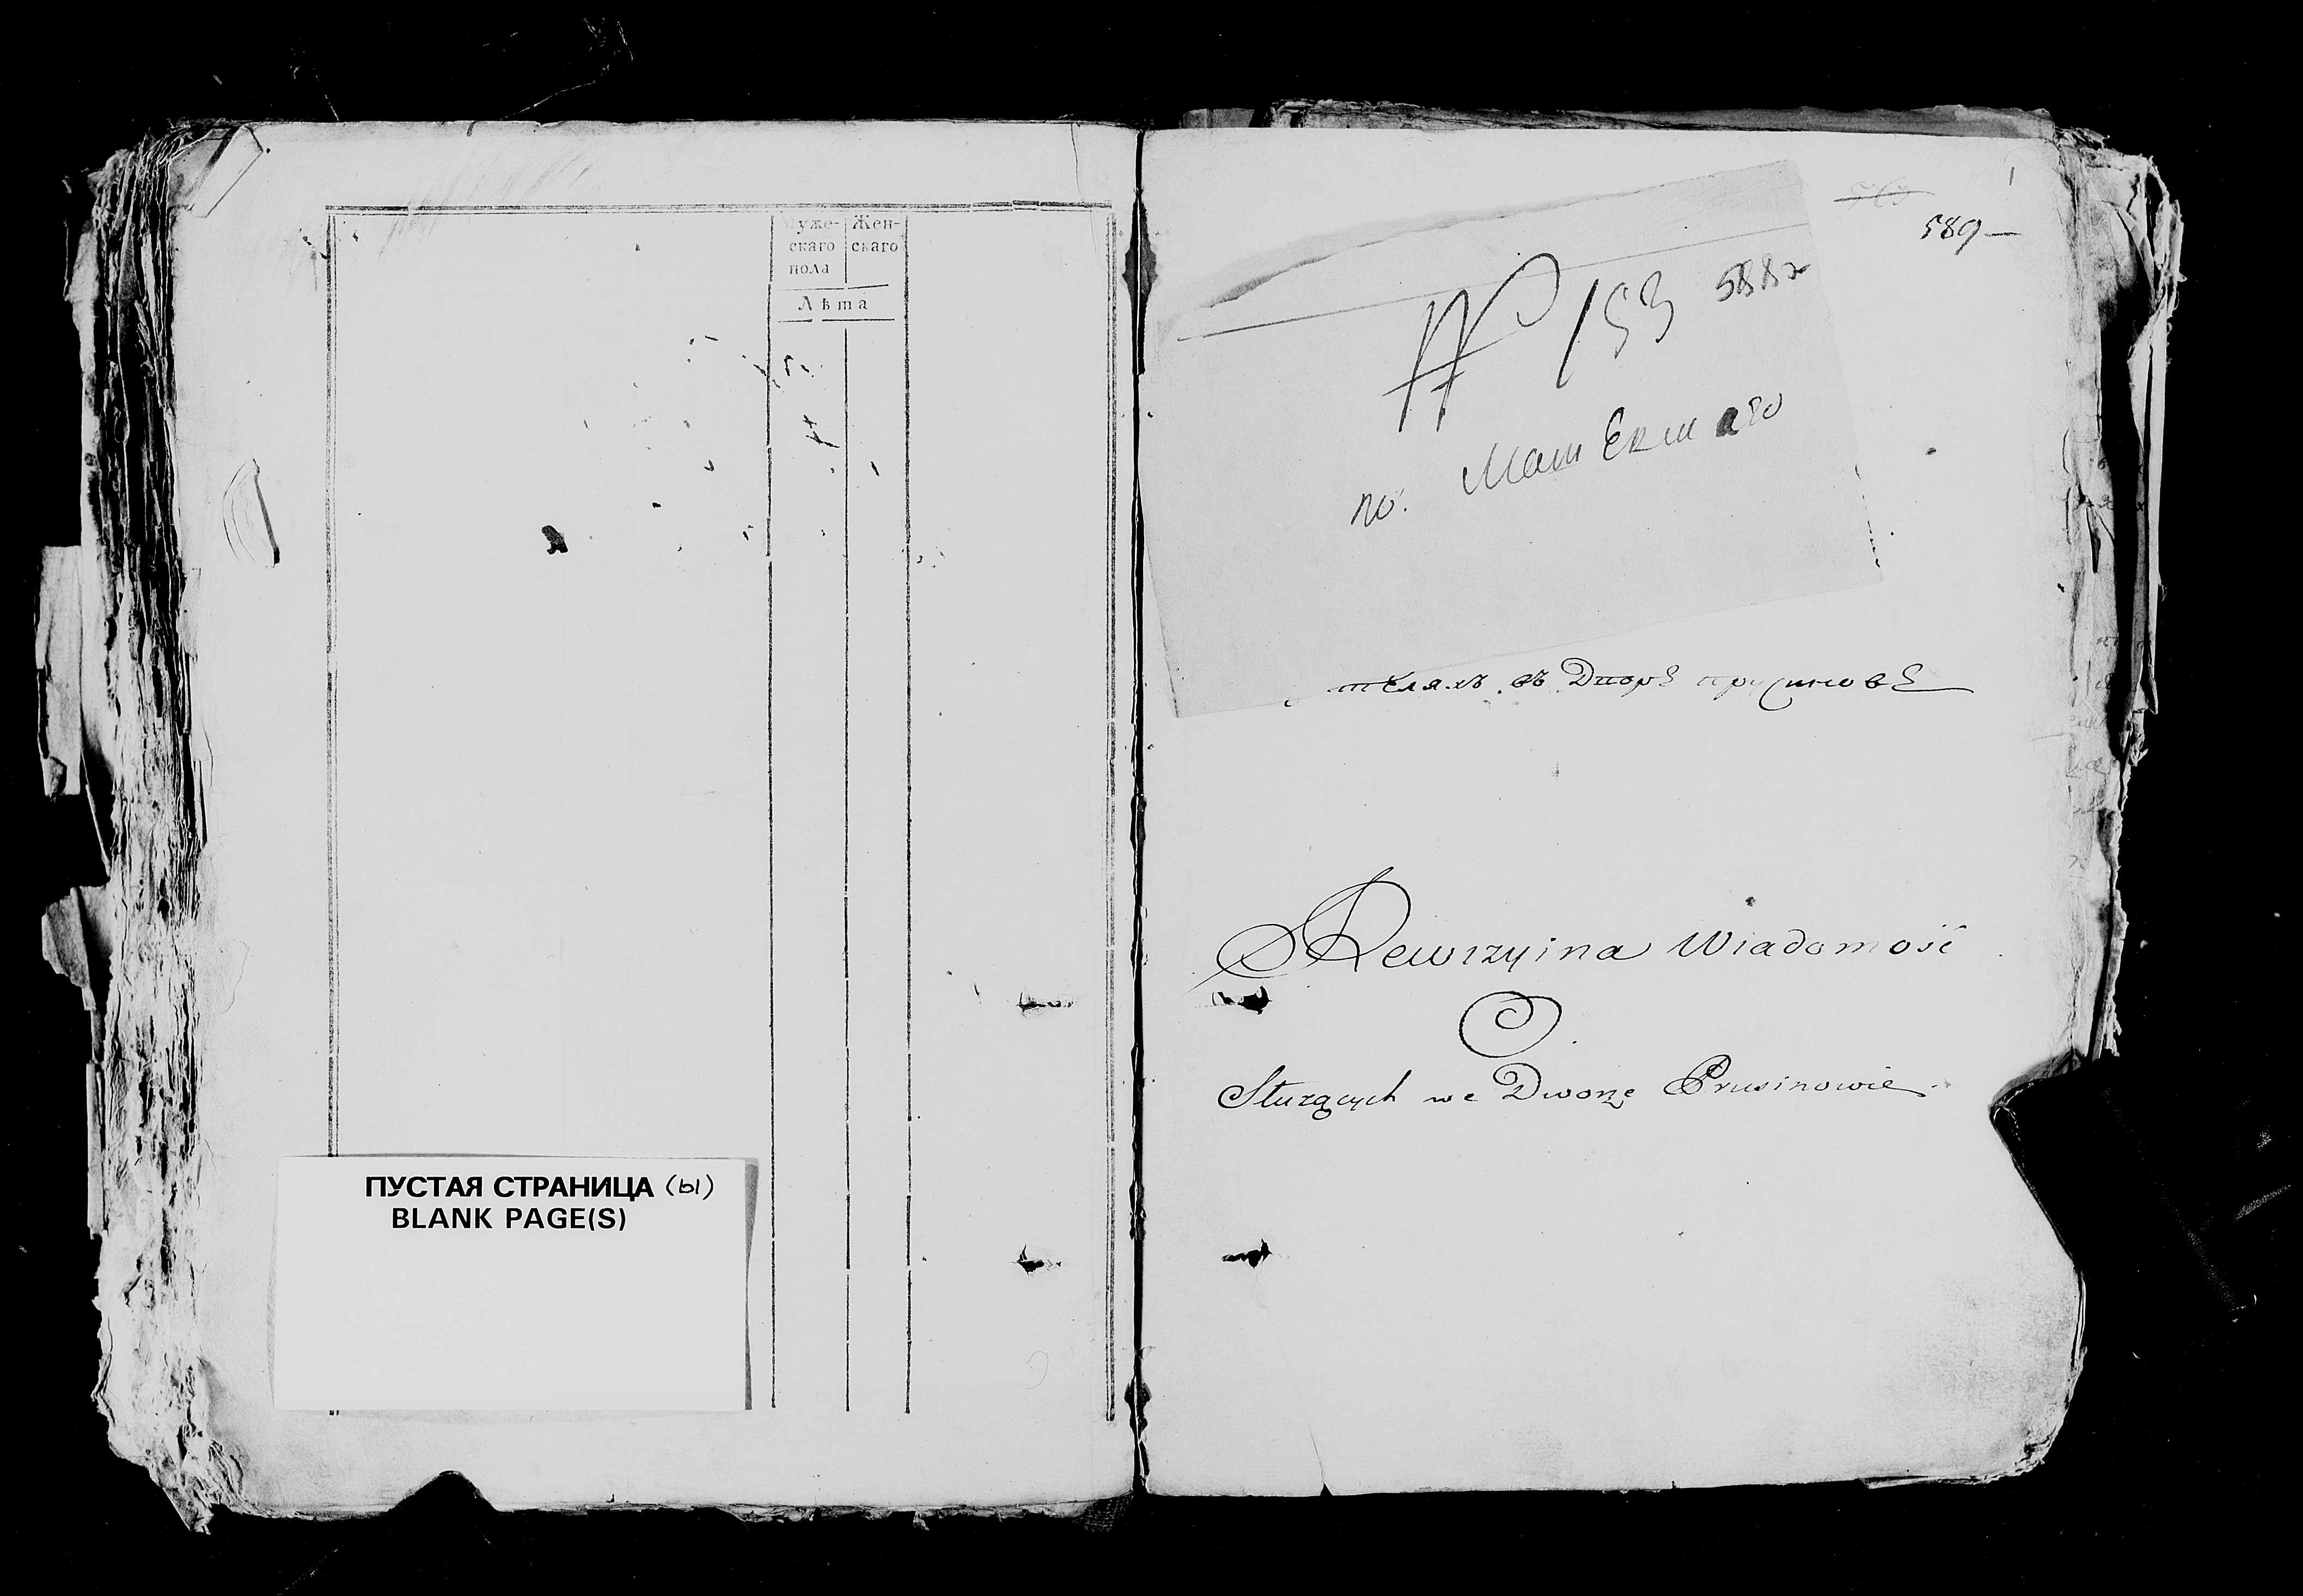 Муже-
скаго
пола
Жен-
скаго
Лѣта
ПУСТАЯ СТРАНИЦА (ы)
BLANK PAGE(S)
1
589
№ 153 588
по.
теляхъ въ Дворѣ прусиновѣ
Rewizyina Wiadomość
O.
Służących we Dworze Prusinowie.